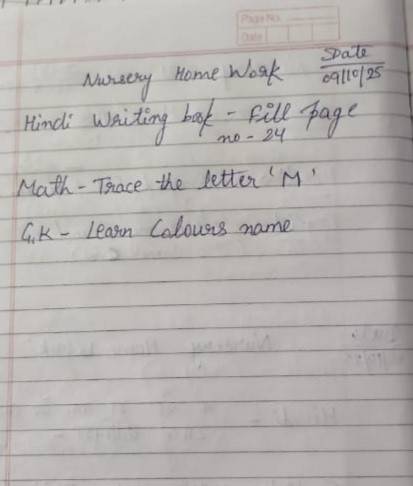 Page No.
Date
Date
Nursery Home Work 09/10/25
Hindi Writing book - Fill page
no - 24
Math - Trace the letter 'M'
G.K - Learn Colours name